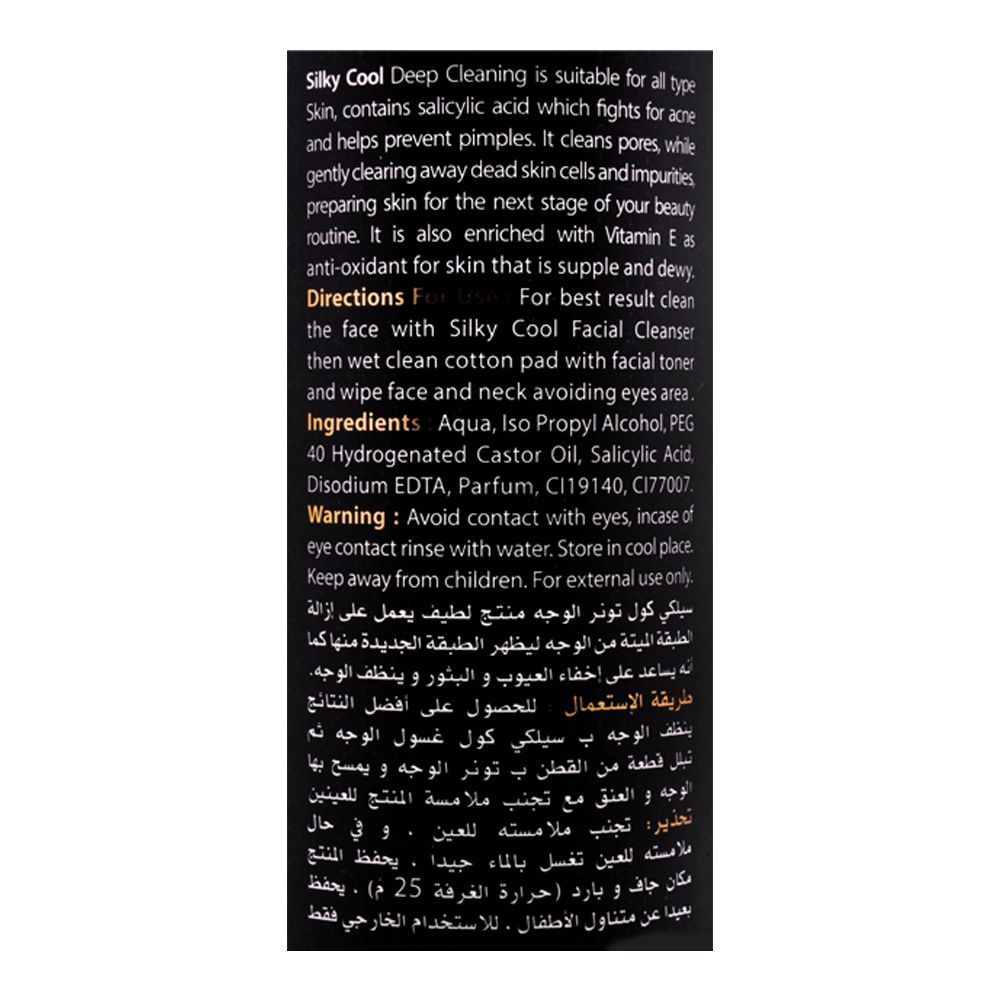 Silky Cool Deep Cleaning is suitable for all type
Skin, contains salicylic acid which fights for acne
and helps prevent pimples. It cleans pores, while
gently clearing away dead skin cells and impurities,
preparing skin for the next stage of your beauty
routine. It is also enriched with Vitamin E as
anti-oxidant for skin that is supple and dewy.
Directions For Use : For best result clean
the face with Silky Cool Facial Cleanser
then wet clean cotton pad with facial toner
and wipe face and neck avoiding eyes area.
Ingredients : Aqua, Iso Propyl Alcohol, PEG
40 Hydrogenated Castor Oil, Salicylic Acid,
Disodium EDTA, Parfum, CI19140, CI77007.
Warning : Avoid contact with eyes, incase of
eye contact rinse with water. Store in cool place.
Keep away from children. For external use only.
سيلكي كول تونر الوجه منتج لطيف يعمل على إزالة
الطبقة الميتة من الوجه ليظهر الطبقة الجديدة منها كما
أنه يساعد على إخفاء العيوب و البثور و ينظف الوجه.
طريقة الإستعمال : للحصول على أفضل النتائج
ينظف الوجه ب سيلكي كول غسول الوجه ثم
تبلل قطعة من القطن ب تونر الوجه و يمسح بها
الوجه و العنق مع تجنب ملامسة المنتج للعينين
تحذير: تجنب ملامسته للعين . و في حال
ملامسته للعين تغسل بالماء جيدا . يحفظ المنتج
مكان جاف و بارد (حرارة الغرفة 25 م) . يحفظ
بعيدا عن متناول الأطفال . للاستخدام الخارجي فقط